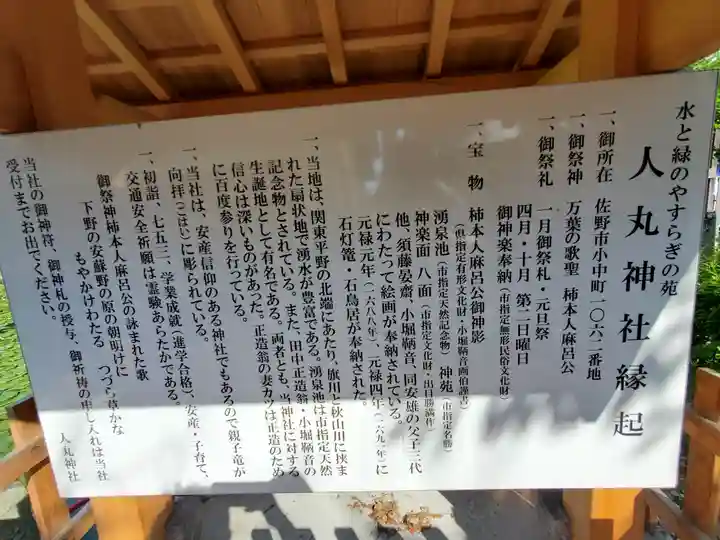 水と緑のやすらぎの苑
人丸神社縁起
一、御所在 佐野市小中町一〇六二番地
一、御祭神 万葉の歌聖 柿本人麻呂公
一、御祭礼 一月御祭礼・元旦祭
四月・十月 第二日曜日
御神楽奉納（市指定無形民俗文化財）
一、宝物 柿本人麻呂公御神影
（県指定有形文化財・小堀鞆音画伯謹書）
湧泉池（市指定天然記念物）神苑（市指定名勝）
神楽面 八面（市指定文化財・出目勝満作）
他、須藤晏齋、小堀鞆音、同安雄の父子三代
にわたって絵画が奉納されている。
元禄元年（一六八八年）、元禄四年（一六九一年）に
石灯篭・石鳥居が奉納された。
一、当地は、関東平野の北端にあたり、旗川と秋山川に挟ま
れた扇状地で湧水が豊富である。湧泉池は市指定天然
記念物とされている。また、田中正造翁・小堀鞆音の
生誕地として有名である。両者とも、当神社に対する
信心は深いものがあった。正造翁の妻カツは正造のため
に百度参りを行っている。
一、当社は、安産信仰のある神社でもあるので親子竜が
向拝（ごはい）に彫られている。
一、初詣、七五三、学業成就（進学合格）、安産・子育て、
交通安全祈願は霊験あらたかである。
御祭神柿本人麻呂公の詠まれた歌
下野の安蘇野の原の朝明けに
もやかけわたる つづら草かな
当社の御神符、御神札の授与、御祈祷の申し入れは当社
受付までお出でください。
人丸神社